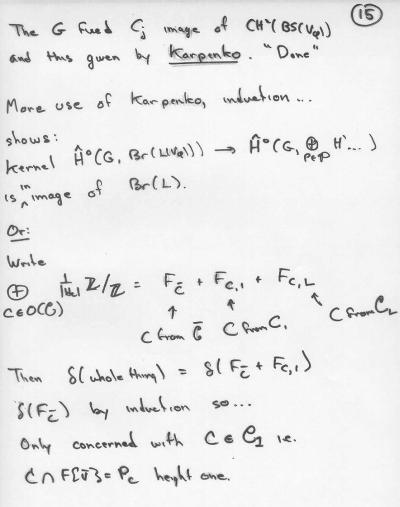 15
The G fixed C_j image of CH²(BS(V_φ))
and thus given by Karpenko. "Done"
More use of Karpenko, induction...
shows:
Kernel Ĥ⁰(G, Br(L(V_φ))) → Ĥ⁰(G, ⊕_{P∈𝒫} H'...)
is in image of Br(L).
Or:
Write
⊕_{C∈O(C)} 1/|H_C| Z/Z = F_C̄ + F_{C,1} + F_{C,2}
C from C̄ C from C₁ C from C₂
Then δ(whole thing) = δ(F_C̄ + F_{C,1})
δ(F_C̄) by induction so...
Only concerned with C ∈ C₁ i.e.
C ∩ F[V̄] = P_C height one.